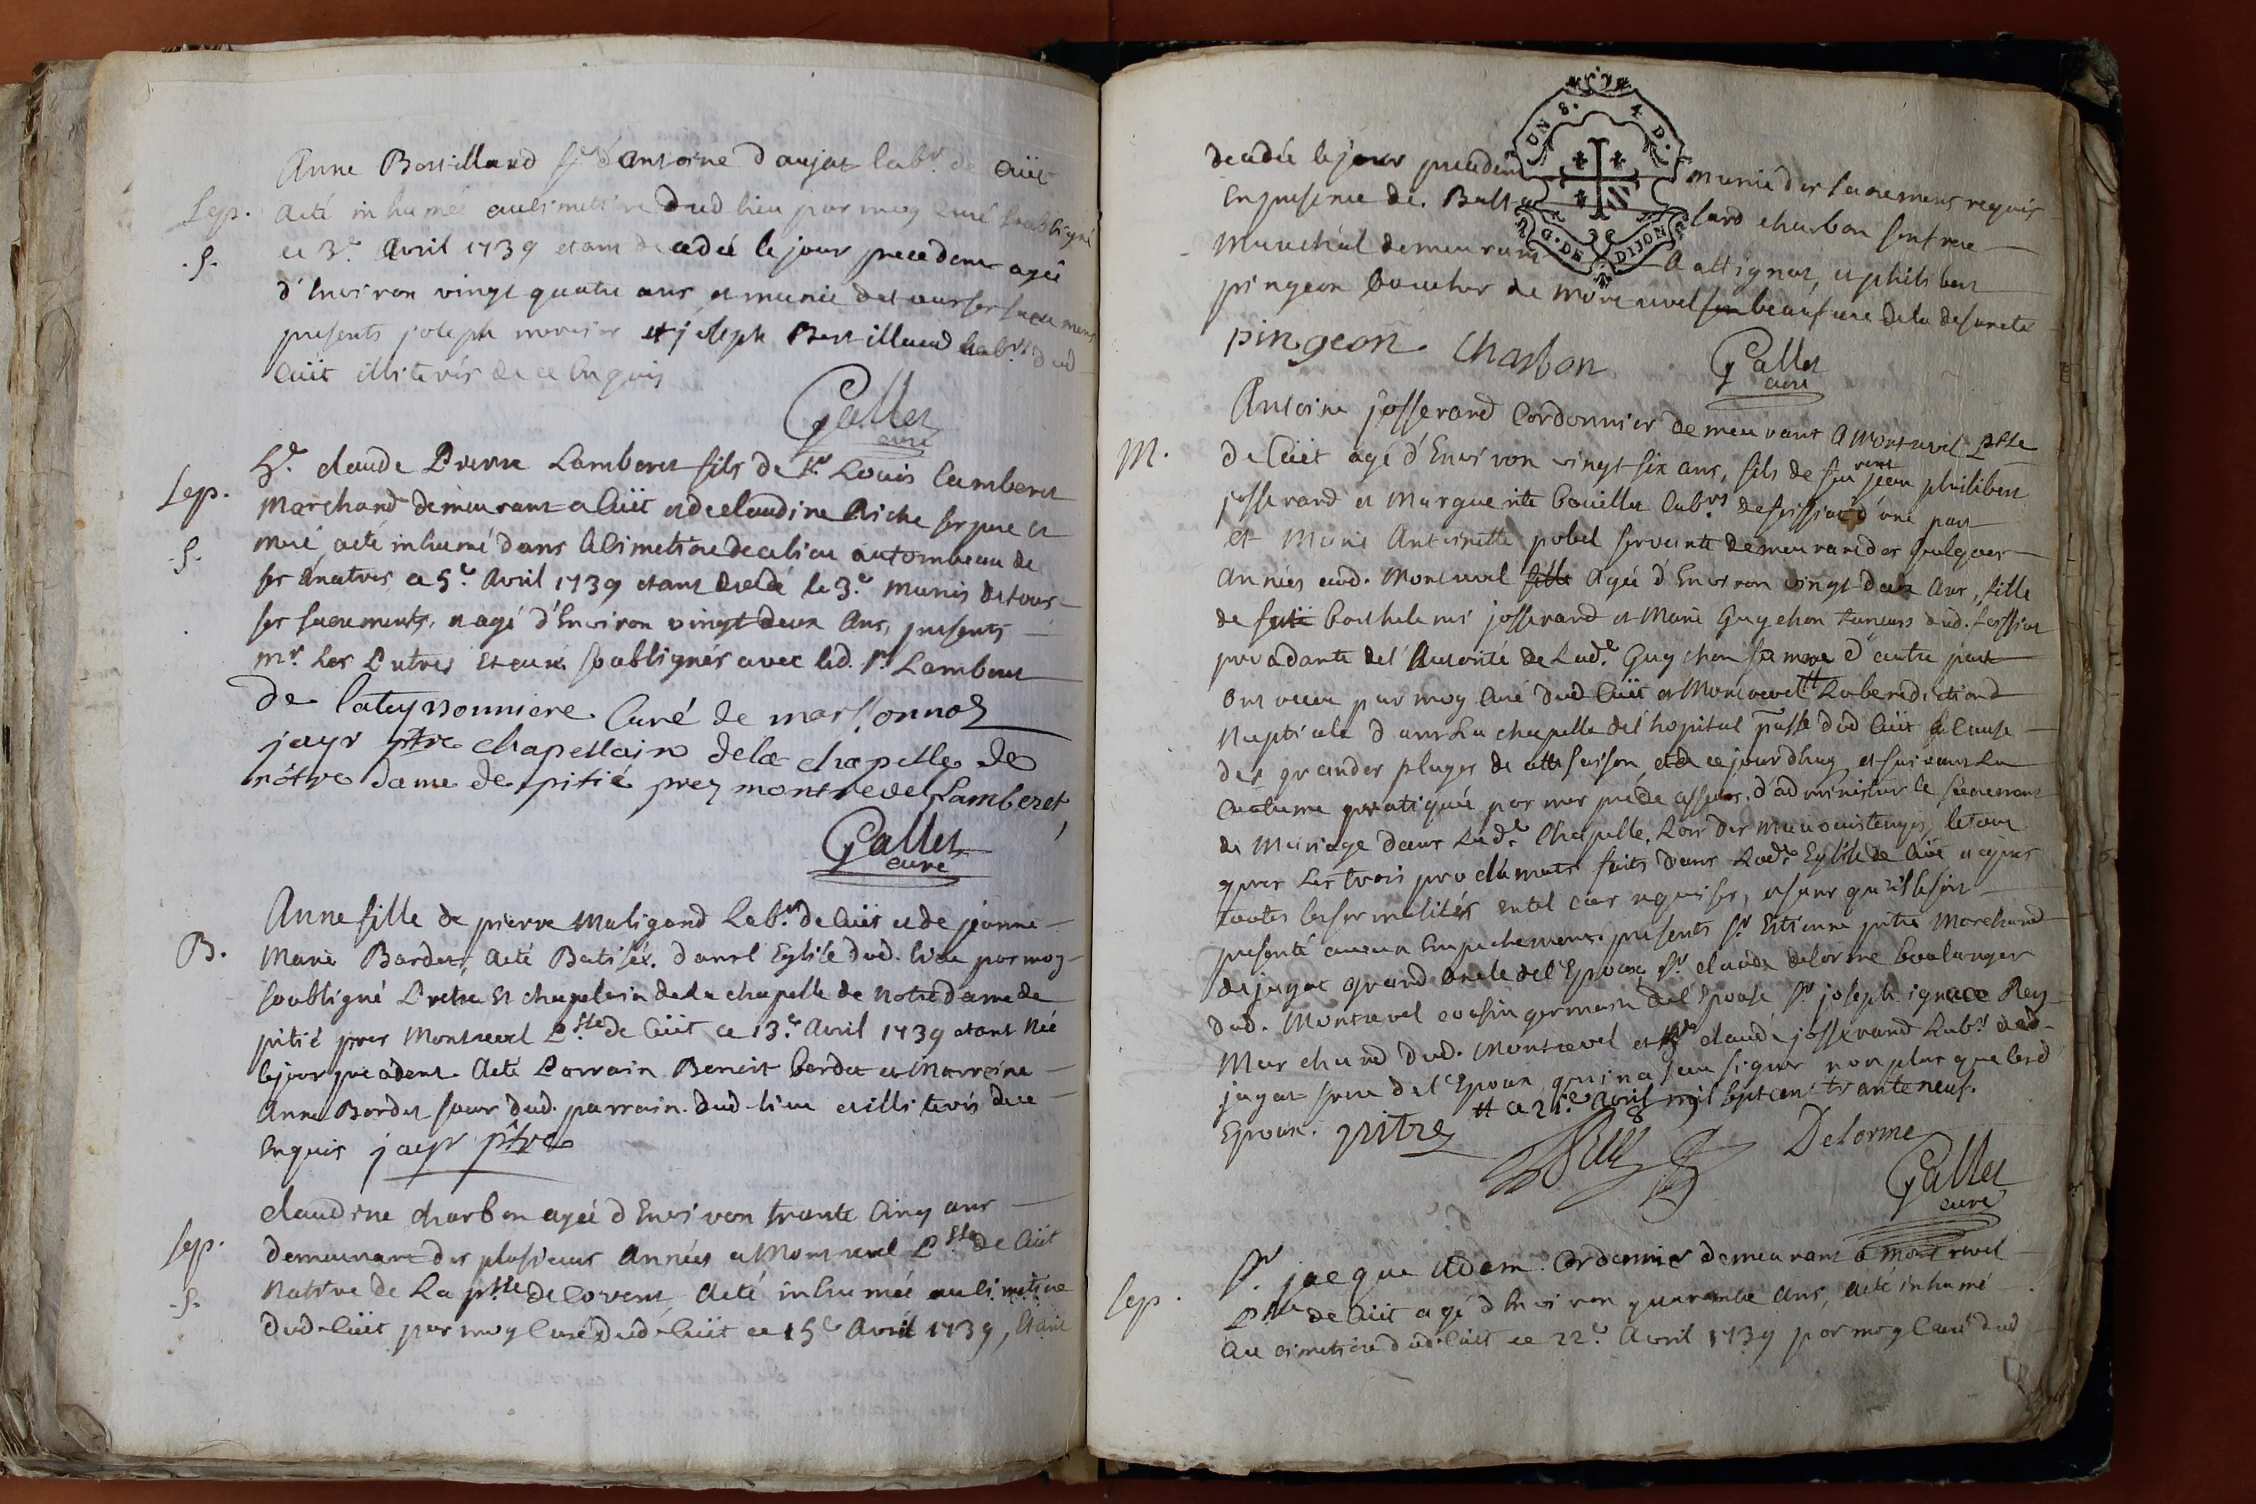 Anne Bortilland fe d'antoine daujat labr. de Cuët
Sep.
a eté inhumée au simetiere dud lieu par moy Curé soubsigné
.S.
ce 3e. Avril 1739 etant decedée le jour precedent agée
d'Environ vingt quatre ans et munie de tous ses sacremens
presents joseph mercier et joseph Bortilland labrs. dud
Cuët illiterés de ce Enquis
Gallet
curé
Sr. claude Pierre Lamberet fils de Sr Louis Lamberet
Sep.
Marchand demeurant a Cuët et de claudine Riche ses pere et
.S.
mere, a eté inhumé dans le simetiere de ce lieu au tombeau de
ses ancetres ce 5e. Avril 1739 etant decedé le 3e. munis de tous
ses sacrements, et agé d'Environ vingt deux Ans, presents
mrs. Les Pretres et curé soubsignés avec led. Sr Lamberet
De lateyssonniere Curé de marsonnas
jayr ptre chapellain de la chapelle de
nôtre dame de pitié prez montrevel Lamberet
Gallet
curé
Anne fille de pierre Maligand Labr. de Cuët et de jeanne
B.
Marie Bardet, a eté Batisée dans l'Eglise dud. lieu par moy
soubsigné Pretre et chapelain de la chapelle de Notre dame de
pitié pres Montrevel Psse de Cuët ce 13e. Avril 1739 etant Née
le jour precedent. a eté Parrain Benoit bardet et Marreine
Anne Bardet sœur dud. parrain dud. lieu et illiterés de ce
Enquis jayr ptre
claudine charbon agée d'Environ trante Cinq ans
Sep.
demeurant des plusieurs Années a Montrevel Psse de Cuët
.S.
Native de La psse de Covent, a eté inhumée au simetiere
dud. Cuët par moy Curé dud. Cuët ce 15e Avril 1739, Etant
UN S. 4 D.
G. DE DIJON
decedée le jour precedent munie des sacremens requis
En presence de. Balta lard charbon son frere
Marechal demeurant a attignat, et philibert
pingeon boucher de Montrevel son beaufrere de la defuncte
pingeon. Charbon Gallet
curé
Antoine josserand Cordonnier demeurant a Montrevel psse
M.
de Cuët agé d'Environ vingt six ans, fils de feu jean philibert
josserand et Marguerite bouillet labrs de foissiat d'une part
et Marie Antoinette pobel servante demeurant des quelques
Années aud. Montrevel fille Agée d'Environ vingt deux Ans, fille
de barthelemi josserand et Marie Guychon dud. foissiat
procedante de l'Autorité de Lade. Guychon sa mere d'autre part
ont receu par moy Curé dud Cuët et Montrevel # La benediction
Nuptiale dans La chapelle de l'hopital Psse dud Cuët a Cause
des grandes pluyes de cette saison et de ce jourdhuy et suivant La
Coutume pratiquée par mes predecesseurs d'administrer le sacrement
de Mariage dans Lade. Chapelle, Lors des mauvais temps, le tout
apres Les trois proclamats faits dans Lade Eglise de Cuët et apres
toutes les formalités en tel cas requises, et sans qu'il se soit
presenté aucun Empechement. presents Sr. Estienne pitre Marchand
de jayat grand oncle de l'Epouse, Sr. claude delorme boulanger
dud. Montrevel cousin germain de l'Epouse Sr. joseph ignace Rey
Marchand dud. Montrevel et claude josserand Labr. aud.
jayat frere de l'Epoux qui n'a sceu signer non plus que lesd
Epoux. # ce 21e. Avril mil sept cent trante neuf.
pitre Rey Delorme
Gallet
curé
Sr. jacque Adam Cordonnier demeurant a Montrevel
Sep.
Psse de Cuët agé d'Environ quarante Ans, a eté inhumé
Au simetiere dud. Cuët ce 22e. Avril 1739 par moy Curé dud